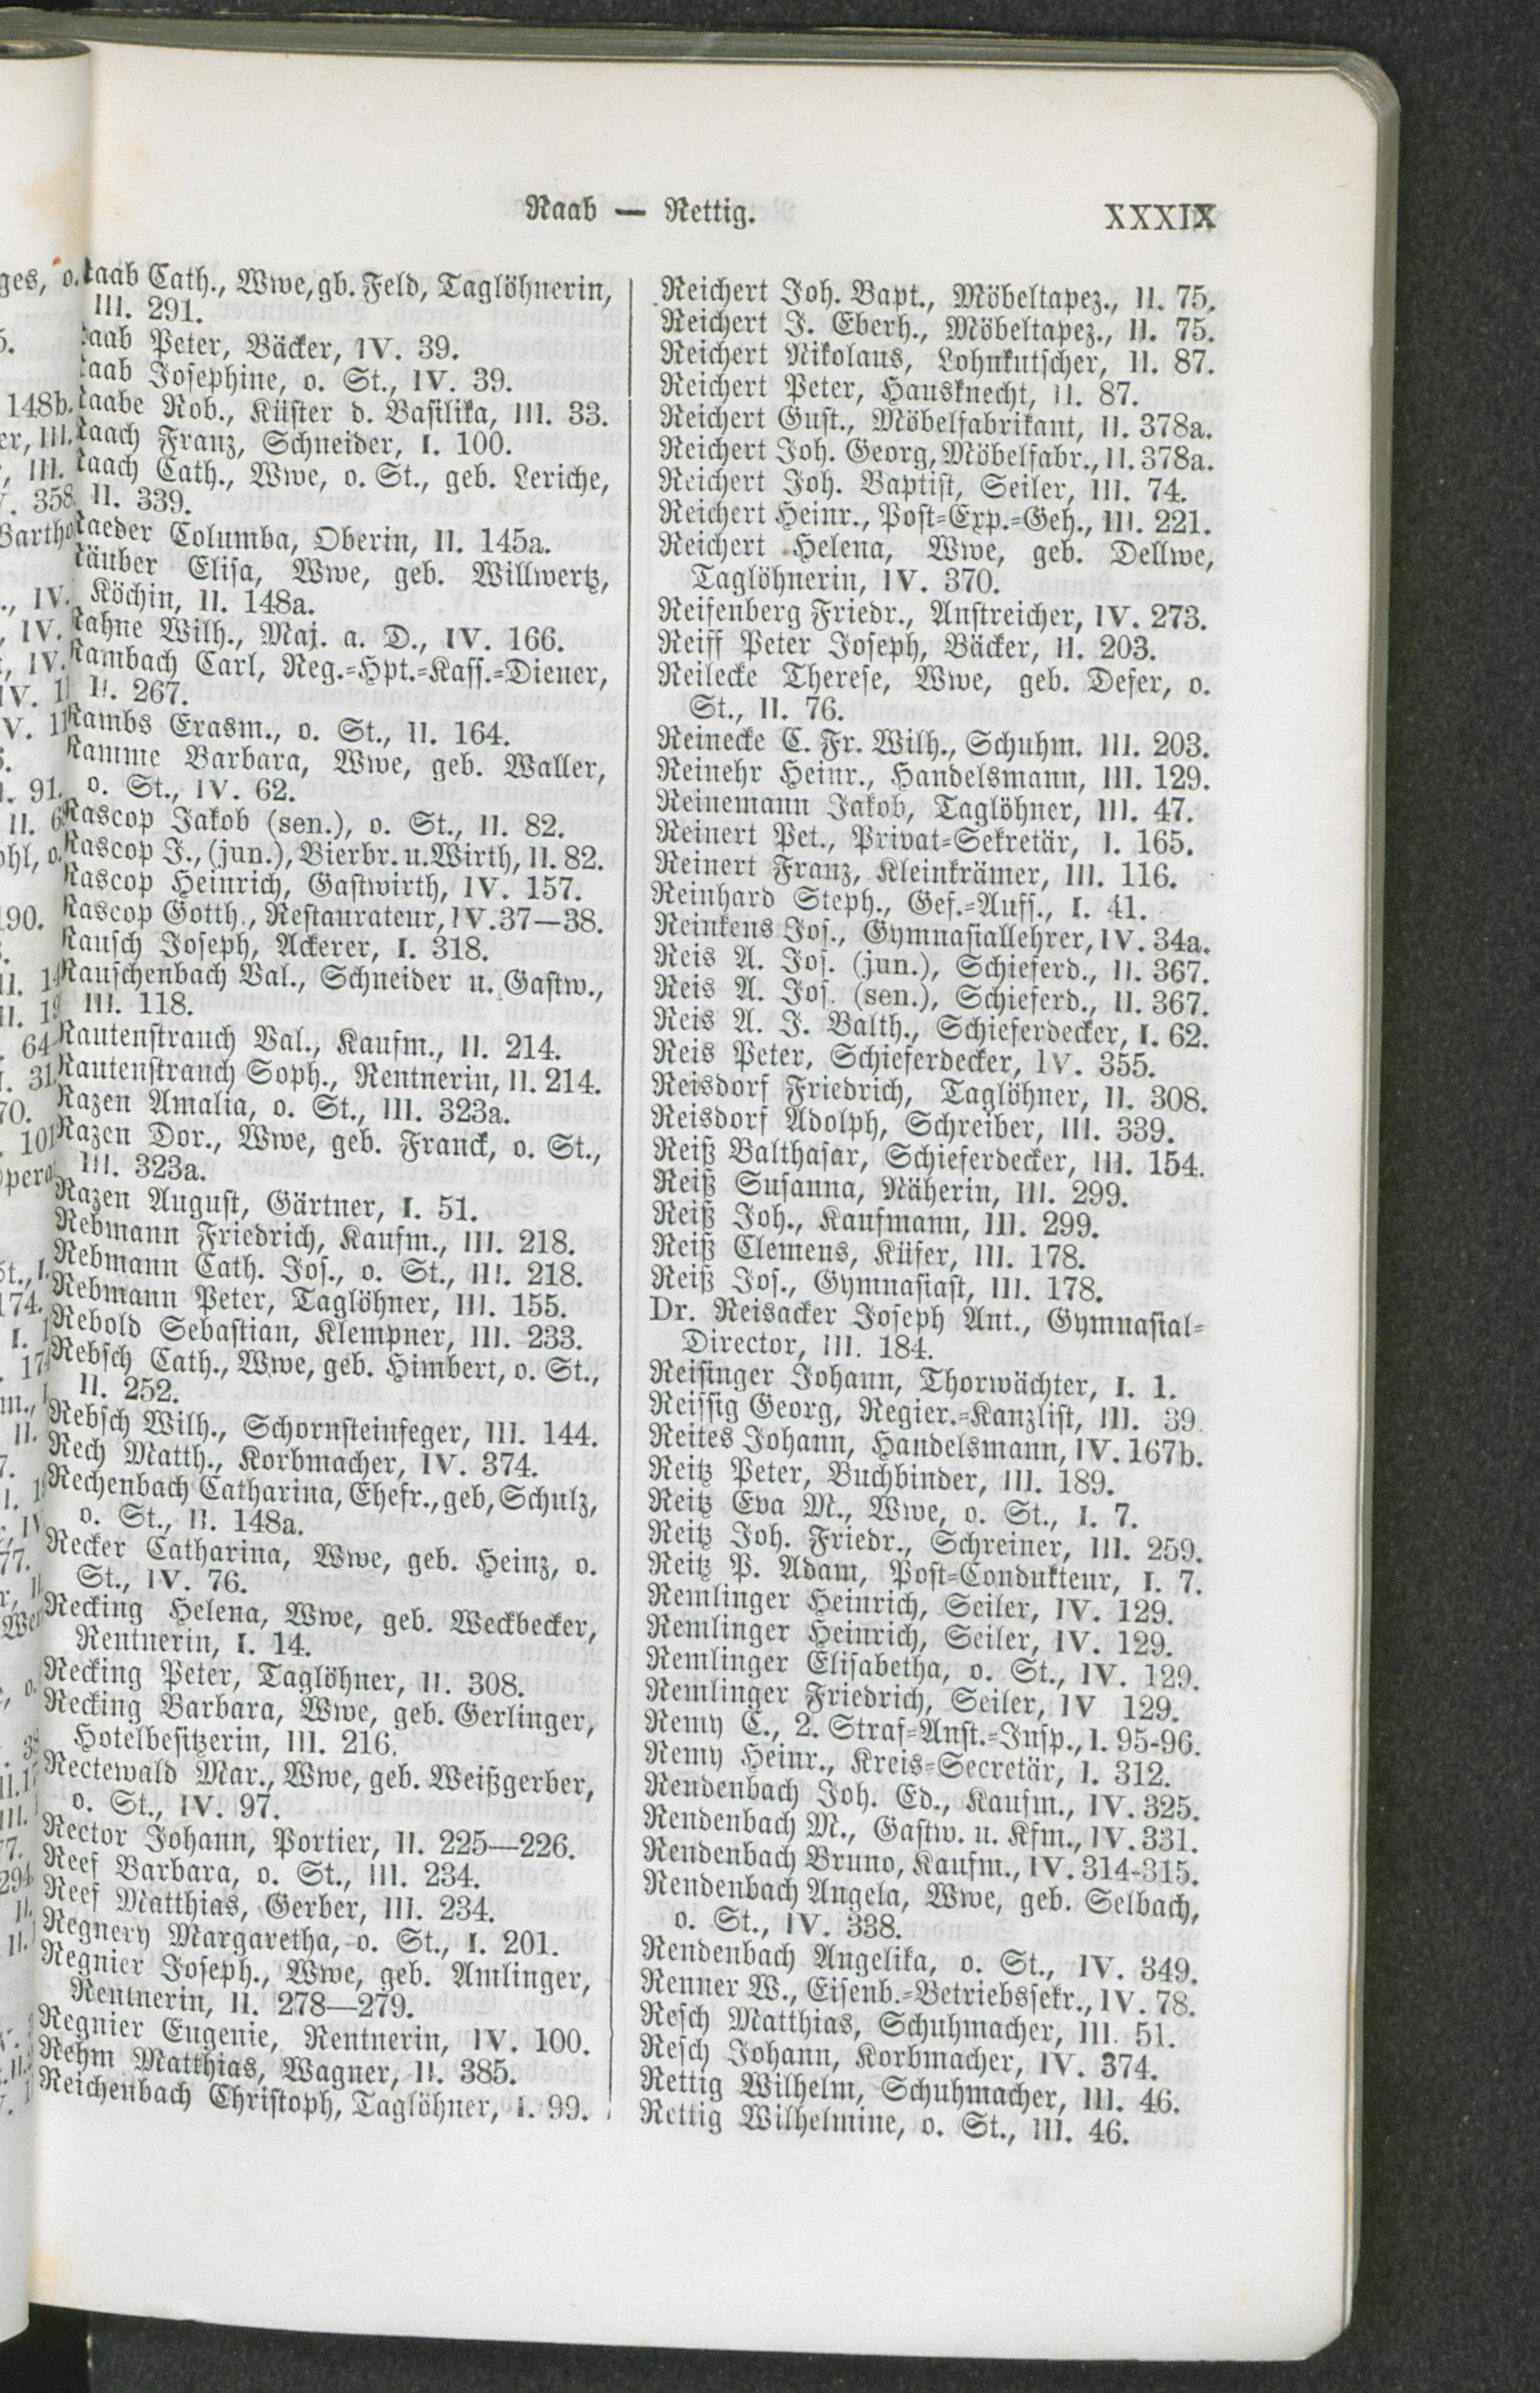 Raab — Rettig.
XXXIX
Raab Cath., Wwe, gb. Feld, Taglöhnerin,
III. 291.
Raab Peter, Bäcker, IV. 39.
Raab Josephine, o. St., IV. 39.
Raabe Rob., Küster d. Basilika, III. 33.
Raach Franz, Schneider, I. 100.
Raach Cath., Wwe, o. St., geb. Leriche,
II. 339.
Raeder Columba, Oberin, II. 145a.
Räuber Elisa, Wwe, geb. Willwertz,
Köchin, II. 148a.
Rahne Wilh., Maj. a. D., IV. 166.
Rambach Carl, Reg.-Hpt.-Kass.-Diener,
II. 267.
Rambs Erasm., o. St., II. 164.
Ramme Barbara, Wwe, geb. Waller,
o. St., IV. 62.
Rascop Jakob (sen.), o. St., II. 82.
Rascop J., (jun.), Bierbr. u. Wirth, II. 82.
Rascop Heinrich, Gastwirth, IV. 157.
Rascop Gotth., Restaurateur, IV. 37—38.
Rausch Joseph, Ackerer, I. 318.
Rauschenbach Val., Schneider u. Gastw.,
III. 118.
Rautenstrauch Val., Kaufm., II. 214.
Rautenstrauch Soph., Rentnerin, II. 214.
Razen Amalia, o. St., III. 323a.
Razen Dor., Wwe, geb. Franck, o. St.,
III. 323a.
Razen August, Gärtner, I. 51.
Rebmann Friedrich, Kaufm., III. 218.
Rebmann Cath. Jos., o. St., III. 218.
Rebmann Peter, Taglöhner, III. 155.
Rebold Sebastian, Klempner, III. 233.
Rebsch Cath., Wwe, geb. Himbert, o. St.,
II. 252.
Rebsch Wilh., Schornsteinfeger, III. 144.
Rech Matth., Korbmacher, IV. 374.
Rechenbach Catharina, Ehefr., geb, Schulz,
o. St., II. 148a.
Recker Catharina, Wwe, geb. Heinz, o.
St., IV. 76.
Recking Helena, Wwe, geb. Weckbecker,
Rentnerin, I. 14.
Recking Peter, Taglöhner, II. 308.
Recking Barbara, Wwe, geb. Gerlinger,
Hotelbesitzerin, III. 216.
Rectewald Mar., Wwe, geb. Weißgerber,
o. St., IV. 97.
Rector Johann, Portier, II. 225—226.
Reef Barbara, o. St., III. 234.
Reef Matthias, Gerber, III. 234.
Regnery Margaretha, o. St., I. 201.
Regnier Joseph., Wwe, geb. Amlinger,
Rentnerin, II. 278—279.
Regnier Eugenie, Rentnerin, IV. 100.
Rehm Matthias, Wagner, II. 385.
Reichenbach Christoph, Taglöhner, I. 99.
Reichert Joh. Bapt., Möbeltapez., II. 75.
Reichert J. Eberh., Möbeltapez., II. 75.
Reichert Nikolaus, Lohnkutscher, II. 87.
Reichert Peter, Hausknecht, II. 87.
Reichert Gust., Möbelfabrikant, II. 378a.
Reichert Joh. Georg, Möbelfabr., II. 378a.
Reichert Joh. Baptist, Seiler, III. 74.
Reichert Heinr., Post-Exp.-Geh., III. 221.
Reichert Helena, Wwe, geb. Dellwe,
Taglöhnerin, IV. 370.
Reifenberg Friedr., Anstreicher, IV. 273.
Reiff Peter Joseph, Bäcker, II. 203.
Reilecke Therese, Wwe, geb. Defer, o.
St., II. 76.
Reinecke C. Fr. Wilh., Schuhm. III. 203.
Reinehr Heinr., Handelsmann, III. 129.
Reinemann Jakob, Taglöhner, III. 47.
Reinert Pet., Privat-Sekretär, I. 165.
Reinert Franz, Kleinkrämer, III. 116.
Reinhard Steph., Gef.-Aufs., I. 41.
Reinkens Jos., Gymnasiallehrer, IV. 34a.
Reis A. Jos. (jun.), Schieferd., II. 367.
Reis A. Jos. (sen.), Schieferd., II. 367.
Reis A. J. Balth., Schieferdecker, I. 62.
Reis Peter, Schieferdecker, IV. 355.
Reisdorf Friedrich, Taglöhner, II. 308.
Reisdorf Adolph, Schreiber, III. 339.
Reiß Balthasar, Schieferdecker, III. 154.
Reiß Susanna, Näherin, III. 299.
Reiß Joh., Kaufmann, III. 299.
Reiß Clemens, Küfer, III. 178.
Reiß Jos., Gymnasiast, III. 178.
Dr. Reisacker Joseph Ant., Gymnasial-
Director, III. 184.
Reisinger Johann, Thorwächter, I. 1.
Reissig Georg, Regier.-Kanzlist, III. 39
Reites Johann, Handelsmann, IV. 167b.
Reitz Peter, Buchbinder, III. 189.
Reitz Eva M., Wwe, o. St., I. 7.
Reitz Joh. Friedr., Schreiner, III. 259.
Reitz P. Adam, Post-Condukteur, I. 7.
Remlinger Heinrich, Seiler, IV. 129.
Remlinger Heinrich, Seiler, IV. 129.
Remlinger Elisabetha, o. St., IV. 129.
Remlinger Friedrich, Seiler, IV 129.
Remy C., 2. Straf-Anst.-Insp., I. 95-96.
Remy Heinr., Kreis-Secretär, I. 312.
Rendenbach Joh. Ed., Kaufm., IV. 325.
Rendenbach M., Gastw. u. Kfm., IV. 331.
Rendenbach Bruno, Kaufm., IV. 314-315.
Rendenbach Angela, Wwe, geb. Selbach,
o. St., IV. 338.
Rendenbach Angelika, o. St., IV. 349.
Renner W., Eisenb.-Betriebssekr., IV. 78.
Resch Matthias, Schuhmacher, III. 51.
Resch Johann, Korbmacher, IV. 374.
Rettig Wilhelm, Schuhmacher, III. 46.
Rettig Wilhelmine, o. St., III. 46.